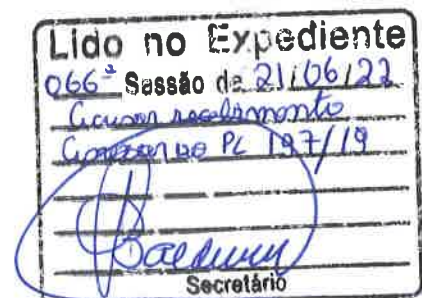 Lido no Expediente
066ª Sessão de 21/06/22
Acusar recebimento
Apensar ao PL 197/19
Secretário